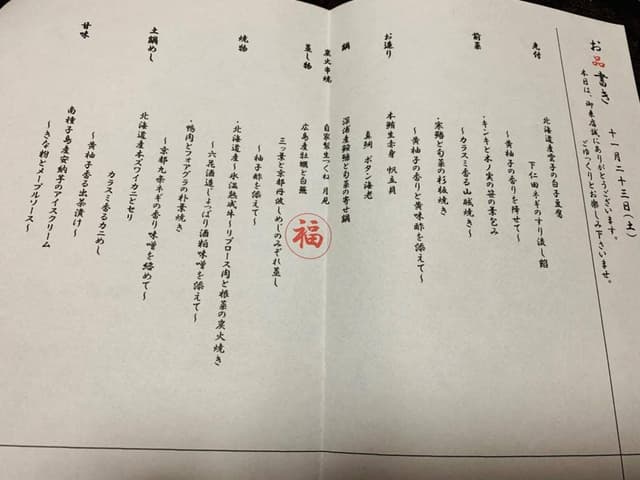 お品書き
十一月二十三日（土）
本日は、御来店誠にありがとうございます。
ごゆっくりとお楽しみ下さいませ。
先付
北海道産雲子の白子豆腐
下仁田ネギのすり流し餡
〜黄柚子の香りを降せて〜
前菜
・キンキと木ノ実の笹の葉包み
〜カラスミ香る山椒焼き〜
・寒鰆と旬菜の杉板焼き
〜黄柚子の香りと黄味酢を添えて〜
お造り
本鮪生赤身 帆立貝
真鯛 ボタン海老
鍋
深浦産鮟鱇と旬菜の寄せ鍋
炭火串焼
自家製生つくね 月見
蒸し物
広島産牡蠣と白蕪
三ッ葉と京都丹波しめじのみぞれ蒸し
〜柚子酢を添えて〜
福
焼物
・北海道産〜氷温熟成牛〜リブロース肉と根菜の炭火焼き
〜六花酒造じょっぱり酒粕味噌を添えて〜
・鴨肉とフォアグラの朴葉焼き
〜京都九条ネギの香り味噌を絡めて〜
土鍋めし
北海道産本ズワイカニとセリ
カラスミ香るカニめし
〜黄柚子香る出茶漬け〜
甘味
南種子島産安納芋のアイスクリーム
〜きな粉とメープルソース〜